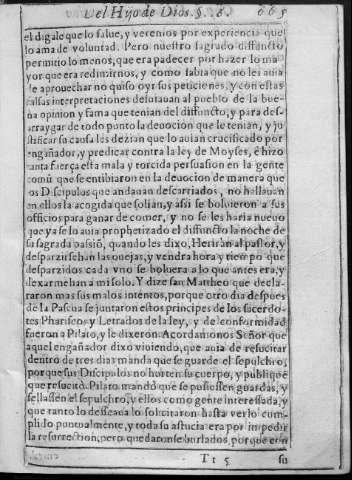 del Hijo de Dios. §. 8. 665
el digale que lo salue, y veremos por experiencia que
lo ama de voluntad. Pero nuestro sagrado diffuncto
permitio lo menos, que era padecer por hazer lo ma
yor que era redimirnos, y como sabia que no les auia
de aprouechar no quiso oyr sus peticiones, y con estas
falsas interpretaciones desuiauan al pueblo de la bue
na opinion y fama que tenian del diffuncto, y para des-
arraygar de todo punto la deuocion que le tenian, y ju
stificar su causa les dezian que lo auian crucificado por
engañador, y predicar contra la ley de Moyses, é hizo
tanta fuerça esta mala y torcida persuasion en la gente
comũ que se entibiaron en la deuocion de manera que
os Discipulos que andauan descarriados, no hallauan
en ellos la acogida que solian, y assi se boluieron a sus
officios para ganar de comer, y no se les haria nueuo
que ya se lo auia prophetizado el diffuncto la noche de
su sagrada passiõ, quando les dixo, Heriran al pastor, y
desparzirsehan las ouejas, y vendra hora y tiempo que
desparzidos cada vno se boluera a lo que antes era, y
dexarmehan a mi solo. Y dize san Mattheo que decla-
raron mas sus malos intentos, porque otro dia despues
de la Pascua se juntaron estos principes de los sacerdo-
tes Phariseos y Letrados de la ley, y de conformidad
fueron a Pilato, y le dixeron. Acordamonos Señor que
aquel engañador dixo viuiendo, que auia de resucitar
dentro de tres dias manda que se guarde el sepulchro,
por que sus Discipulos no hurten su cuerpo, y publiquẽ
que resucitò. Pilato mandó que se pusiessen guardas, y
sellassen el sepulchro, y ellos como gente interessada, y
que tanto lo desseaua lo solicitaron hasta verlo cum-
plido puntualmente, y toda su astucia era por impedir
la resurrection, pero quedaronse burlados, porque con
Tt 5 su